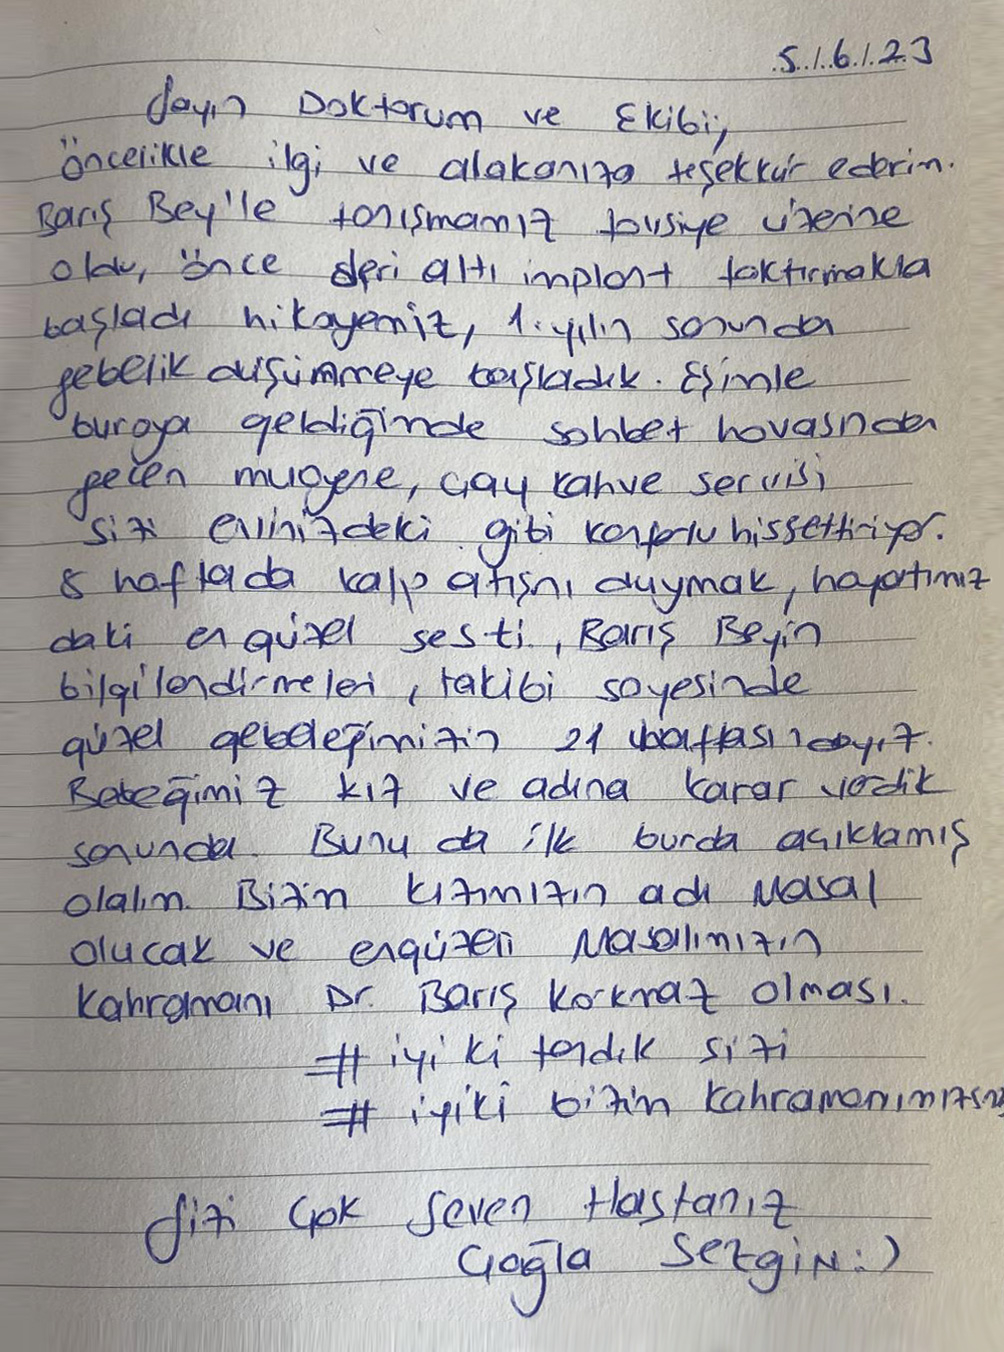 5./.6./.23
Sayın Doktorum ve Ekibi,
öncelikle ilgi ve alakanıza teşekkür ederim.
Barış Bey'le tanışmamız tavsiye üzerine
oldu, önce deri altı implant taktırmakla
başladı hikayemiz, 1. yılın sonunda
gebelik düşünmeye başladık. Eşimle
buraya geldiğinde sohbet havasında
geçen muayene, çay kahve servisi
sizi evinizdeki gibi konforlu hissettiriyor.
8 haftada kalp atışını duymak, hayatımız
daki en güzel sesti, Barış Beyin
bilgilendirmeleri, takibi sayesinde
güzel gebeleğimizin 21 haftasındayız.
Bebeğimiz kız ve adına karar verdik
sonunda. Bunu da ilk burda açıklamış
olalım. Bizim kızımızın adı Masal
olucak ve engüzeli Masalımızın
Kahramanı Dr. Barış Korkmaz olması.
# iyi ki tanıdık sizi
# iyiki bizim kahramanımızsınız
Sizi Çok Seven Hastanız
Çağla SezgiN :)